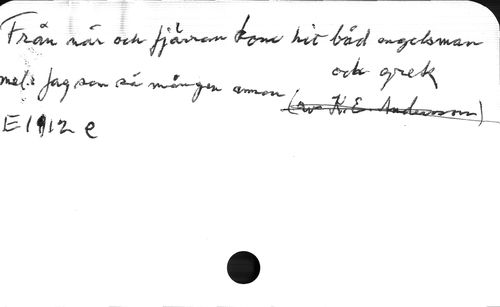 Från när och fjärran kom hit båd engelsman
och grek
mel: Jag som så mången annan (av K. E. Andersson)
E1912 e